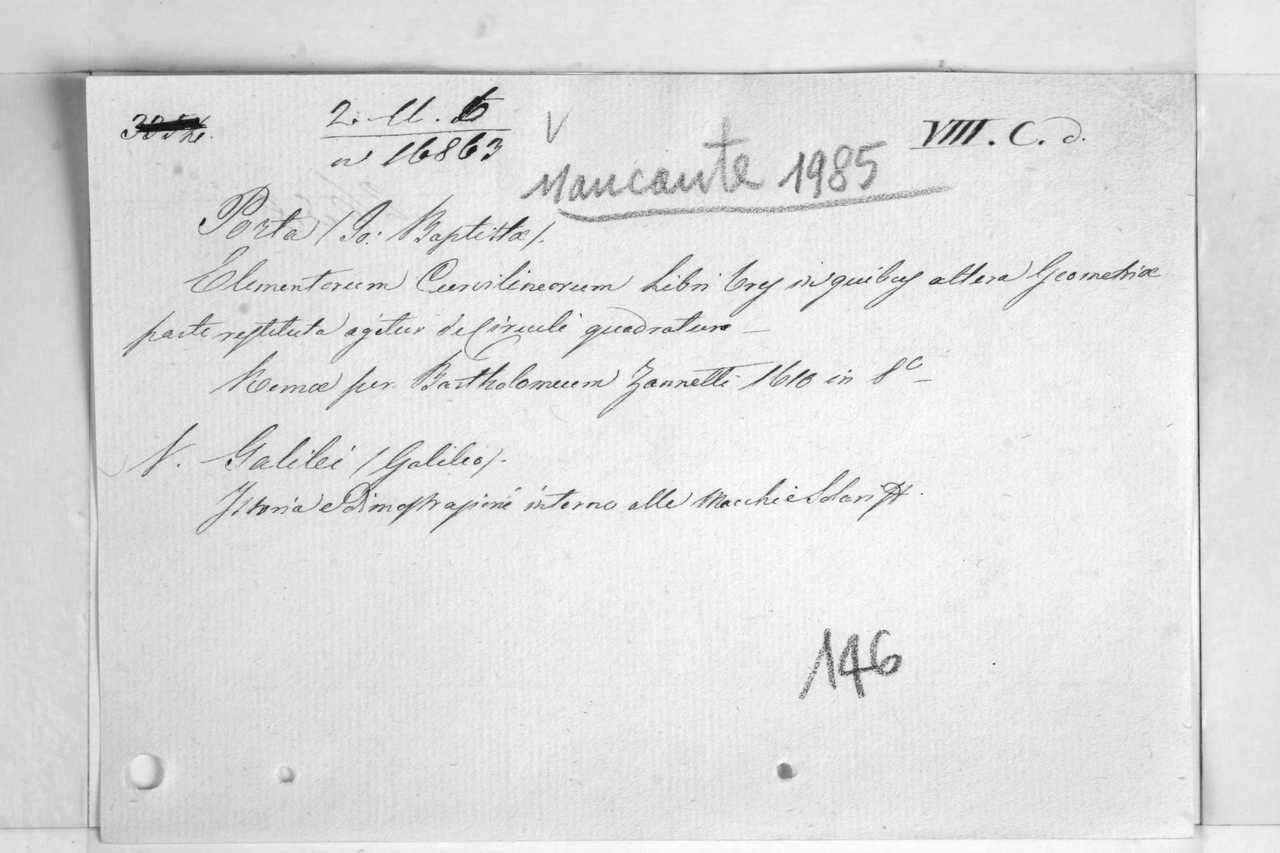 2. U. 6
n° 16863
V
Mancante 1985
VIII. C. d.
Porta (Jo: Baptistæ).
Elementorum Curvilineorum Libri tres in quibus altera Geometriæ
parte restituta agitur de Circuli quadratura —
Romæ per Bartholomeum Zannetti 1610 in 8° —
V. Galilei (Galileo).
Istoria e Dimostrazioni intorno alle Macchie Solari
146